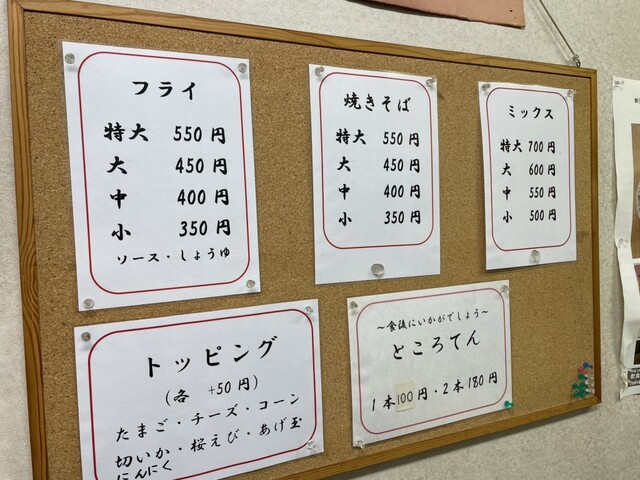 フライ
特大 550円
大 450円
中 400円
小 350円
ソース・しょうゆ
焼きそば
特大 550円
大 450円
中 400円
小 350円
ミックス
特大 700円
大 600円
中 550円
小 500円
トッピング
(各 +50円)
たまご・チーズ・コーン
切いか・桜えび・あげ玉
にんにく
～食後にいかがでしょう～
ところてん
1本100円・2本180円